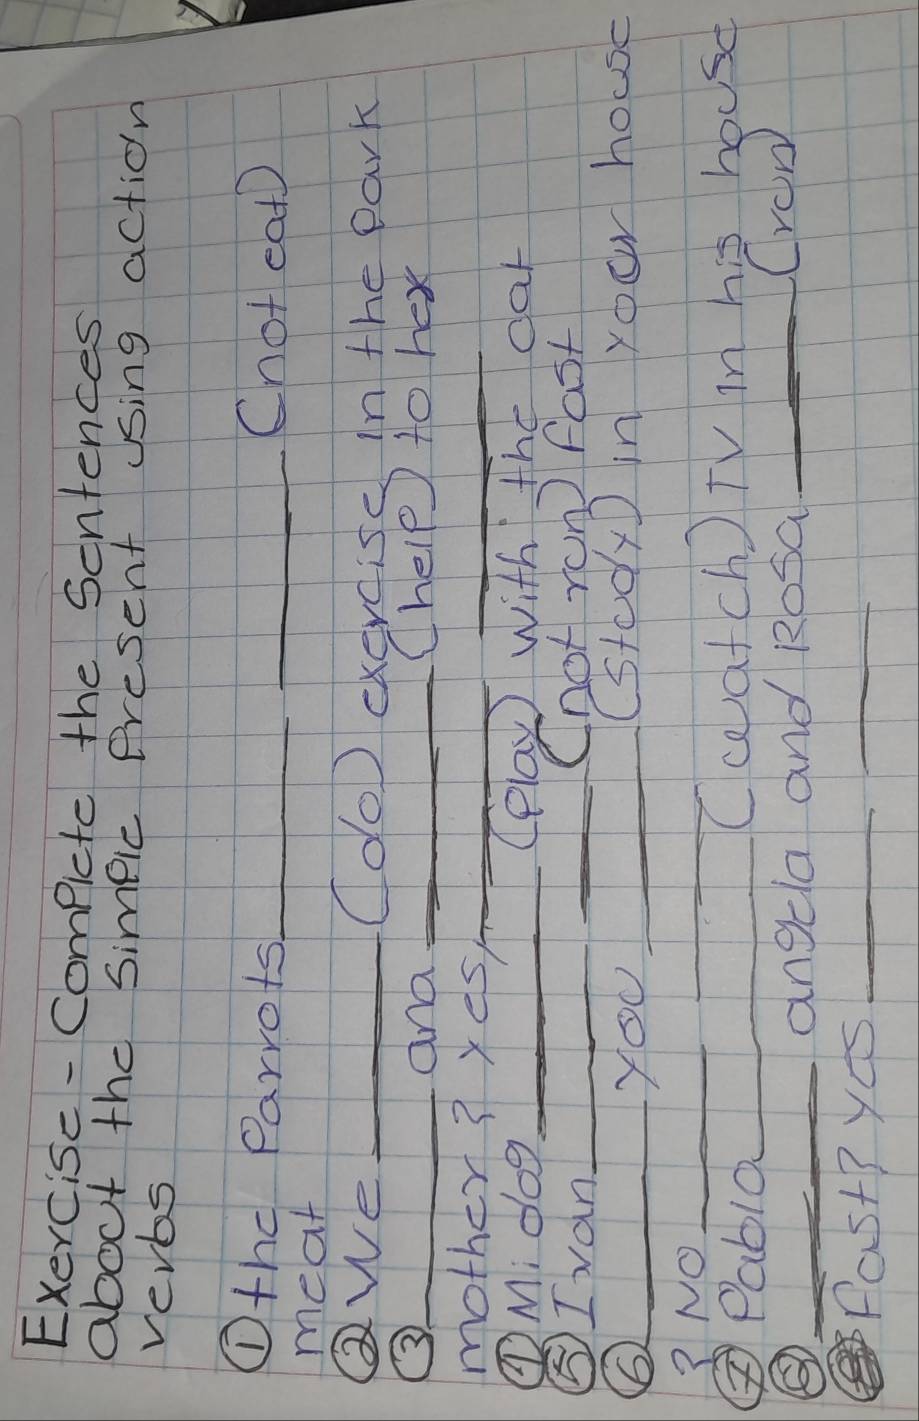 Exercise - Complete the sentences
about the simple Present using action
verbs
① the Parrots ______ ______ (not eat)
meat
② We ______ (do) exercise in the park
③ ______ ana ______ (help) to her
mother? Yes, ______ ______
④ Mi dog ______ (Play) with the cat
⑤ Ivan ______ ______ (not run) fast
⑥ ______ you ______ (study) in your house
? No ______ ______
⑦ Pablo ______ (watch) TV in his house
⑧ ______ angela and Rosa ______ (run)
fast? Yes ______ ______